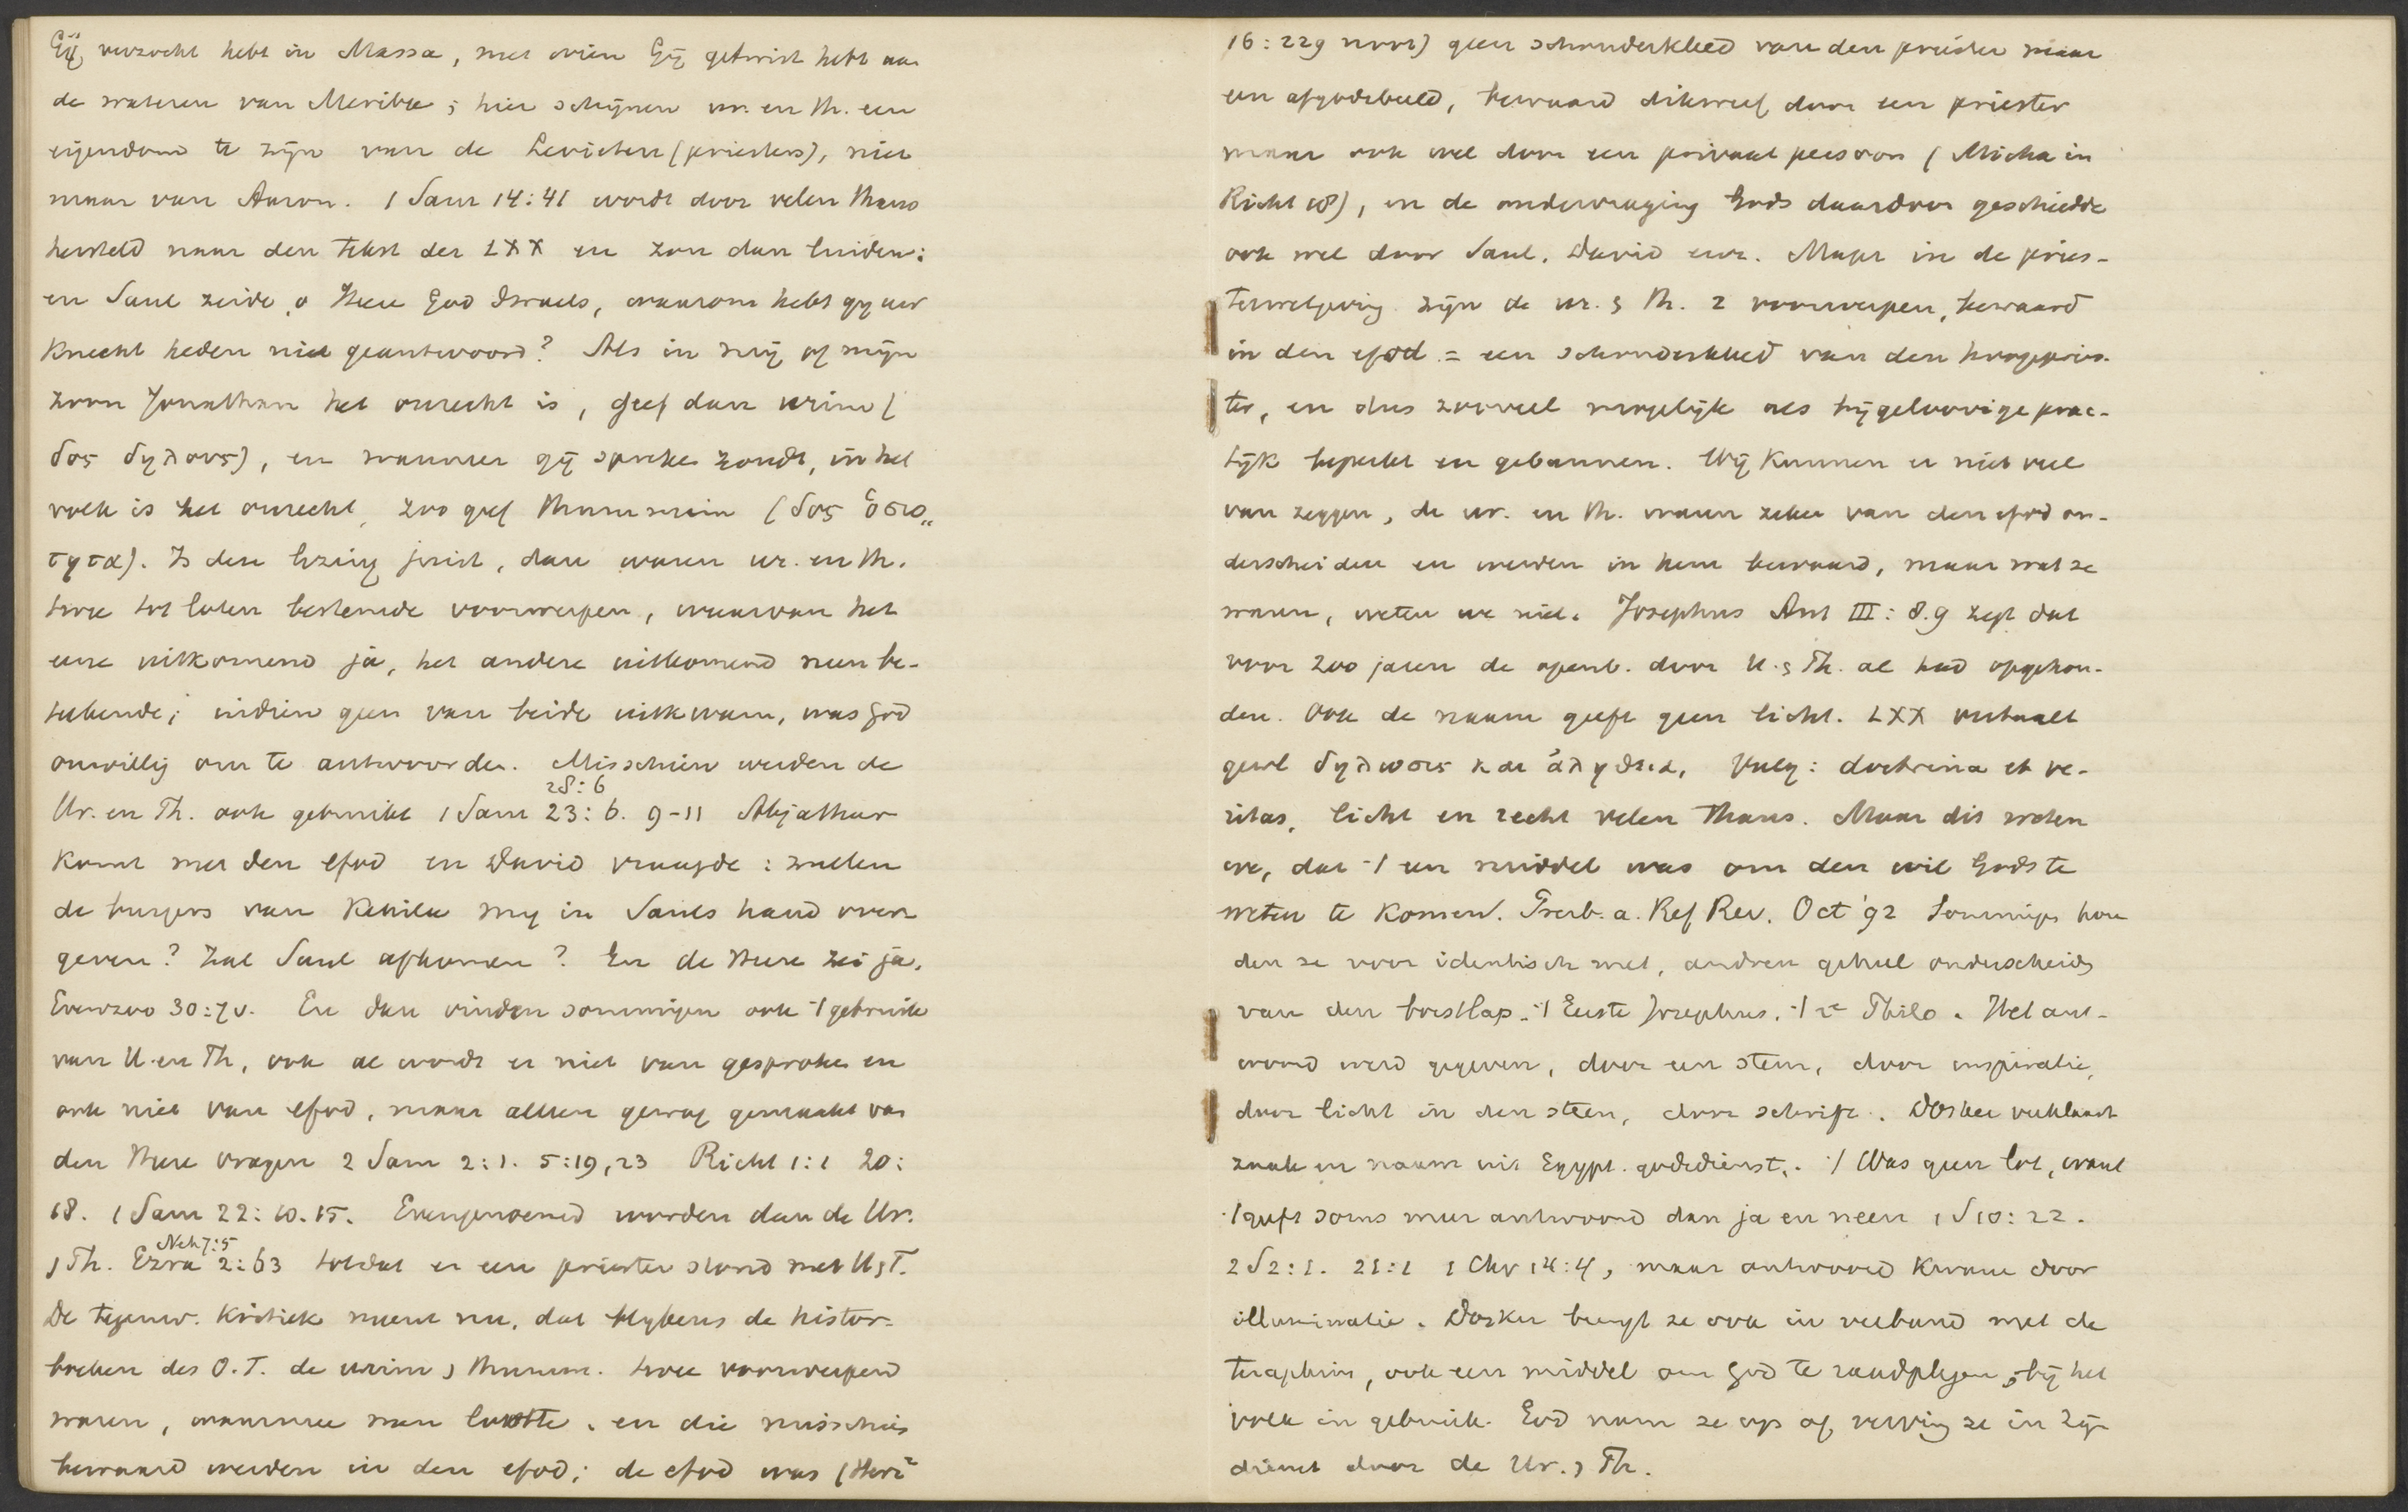 Gij verzocht hebt in Massa, met wien Gij getwist hebt aan
de wateren van Meriba; hier schijnen ur. en th. een
eigendom te zijn van de Levieten (priesters), niet
maar van Aaron. 1 Sam 14:41 wordt door velen thans
hersteld naar den tekst der LXX en zou dan luiden:
en Saul zeide, o Heere God Israels, waarom hebt gij uw
knecht heden niet geantwoord? Als in mij of mijn
zoon Jonathan het onrecht is, geef dan urim (
δος δηλους), en wanneer gij spreken zoudt, in het
volk is het onrecht, zoo geef thummim (δος ὁσιο„
τητα). Is deze lezing juist, dan waren ur. en th.
twee tot loten bestemde voorwerpen, waarvan het
eene uitkomend ja, het andere uitkomend neen be-
teekende; indien geen van beide uitkwam, was God
onwillig om te antwoorden. Misschien werden de
28:6
Ur. en Th. ook gebruikt 1 Sam 23:6. 9-11 Abjathar
komt met den efod en David vraagde: zullen
de burgers van Kehila mij in Sauls hand over
geven? Zal Saul afkomen? En de Heere zei ja.
Evenzoo 30:7v. En dan vinden sommigen ook ·/· gebruik
van U en Th, ook al wordt er niet van gesproken en
ook niet van efod, maar alleen gewag gemaakt van
den Heere vragen 2 Sam 2:1. 5:19,23 Richt 1:1 20:
18. 1 Sam 22:10.15. Evengenoemd worden dan de Ur.
Neh 7:5
, Th. Ezra 2:63 totdat er een priester stond met U, T.
De tegenw. kritiek meent nu, dat blijkens de histor.
boeken des O.T. de urim , thumm. twee voorwerpen
waren, waarmee men lootte, en die misschien
bewaard werden in den efod; de efod was (Herz²
16:229 noot) geen schouderkleed van den priester maar
een afgodsbeeld, bewaard dikwerf door een priester
maar ook wel door een privaat persoon (Micha in
Richt 18), en de ondervraging Gods daardoor geschiedde
ook wel door Saul, David enz. Maar in de pries-
terwetgeving zijn de ur. , th. 2 voorwerpen, bewaard
in den efod = een schouderkleed van den hoogepries-
ter, en dus zooveel mogelijk als bijgeloovige prac-
tijk beperkt en gebannen. Wij kunnen er niet veel
van zeggen, de ur. en th. waren zeker van den efod on-
derscheiden en werden in hem bewaard, maar wat ze
waren, weten we niet. Josephus Ant III: 8.9 zegt dat
voor 200 jaren de openb. door U. , Th. al had opgehou-
den. Ook de naam geeft geen licht. LXX vertaalt
gew. δηλωσις και ἀληθεια, Vulg: doctrina et ve-
ritas, licht en recht velen thans. Maar dit weten
we, dat ·/· een middel was om den wil Gods te
weten te komen. Presb. a. Ref Rev. Oct '92 Sommigen hou
den ze voor identisch met, andren geheel onderscheiden
van den borstlap. ·/· Eerste Josephus. ·/· 2e Philo. Het ant-
woord werd gegeven, door een stem, door inspiratie,
door licht in den steen, door schrift. Dosker verklaart
zaak en naam uit Egypt. godsdienst. ·/· Was geen lot, want
·/· geeft soms meer antwoord dan ja en neen 1 S 10:22.
2 S 2:1. 21:1 1 Chr 14:4, maar antwoord kwam door
illuminatie. Dosker brengt ze ook in verband met de
teraphim, ook een middel om God te raadplegen, bij het
volk in gebruik. God nam ze op of, verving ze in zijn
dienst door de Ur. , Th.